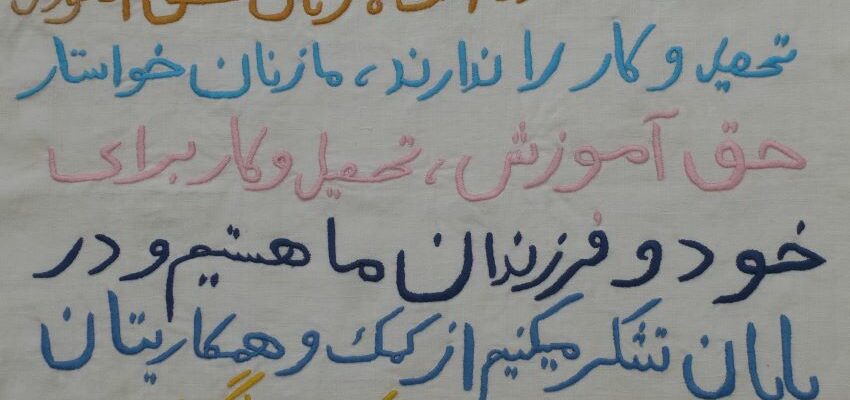 زنان حق آموزش
تحصیل و کار را ندارند، ما زنان خواستار
حق آموزش، تحصیل و کار برای
خود و فرزندان ما هستیم و در
پایان تشکر میکنیم از کمک و همکاریتان